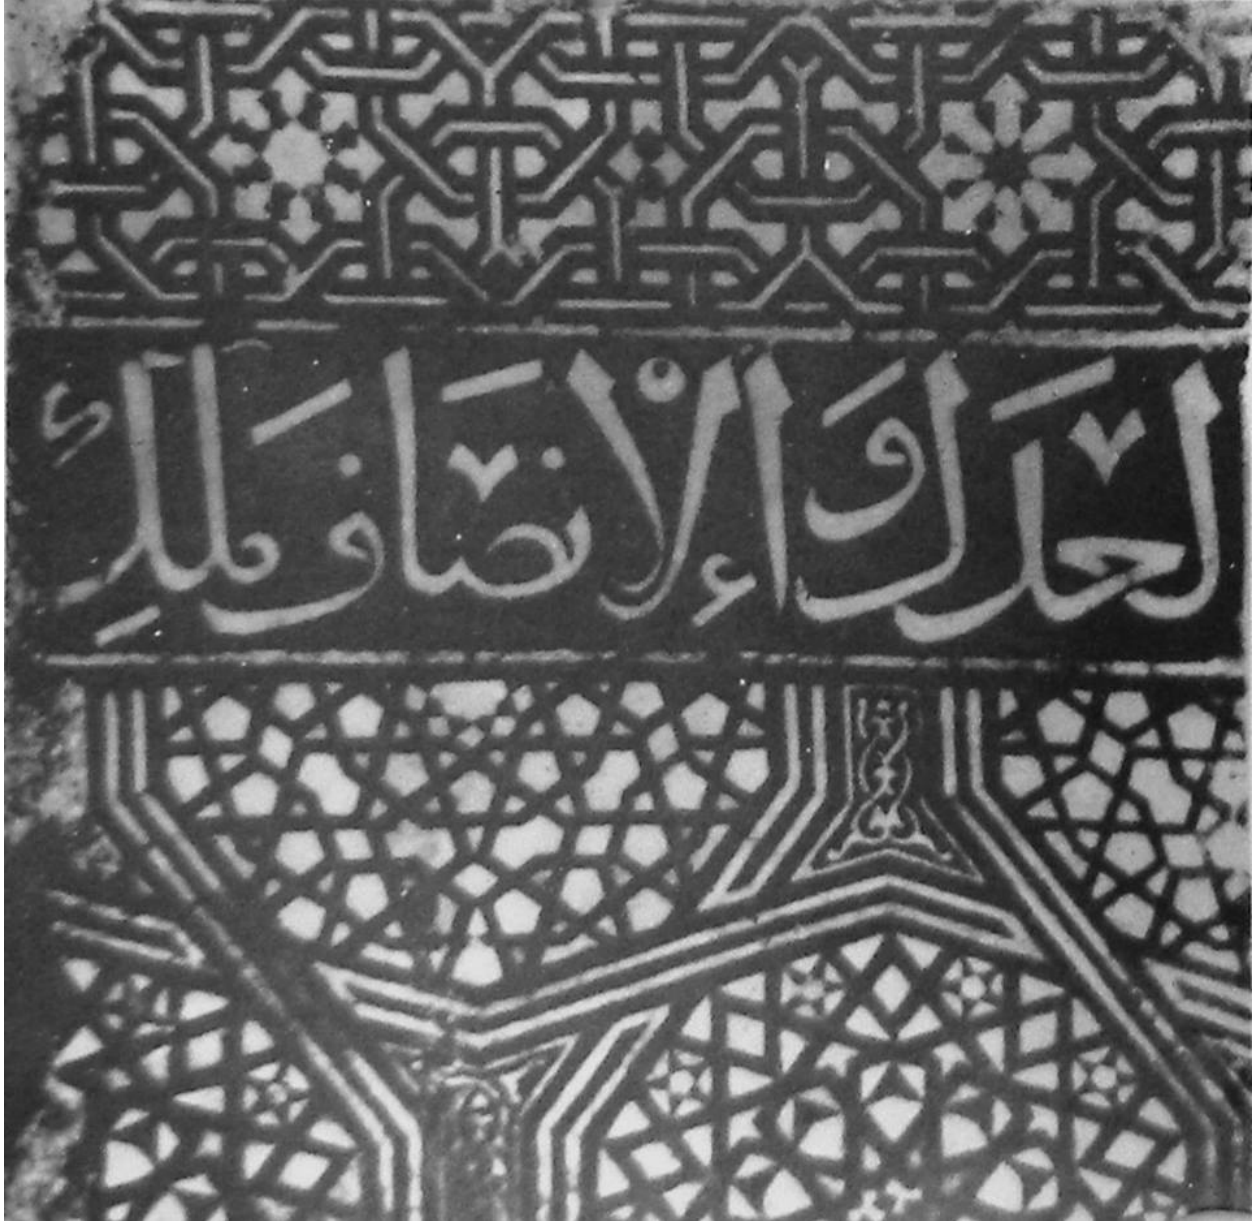 لعدل والإنصاف ملك